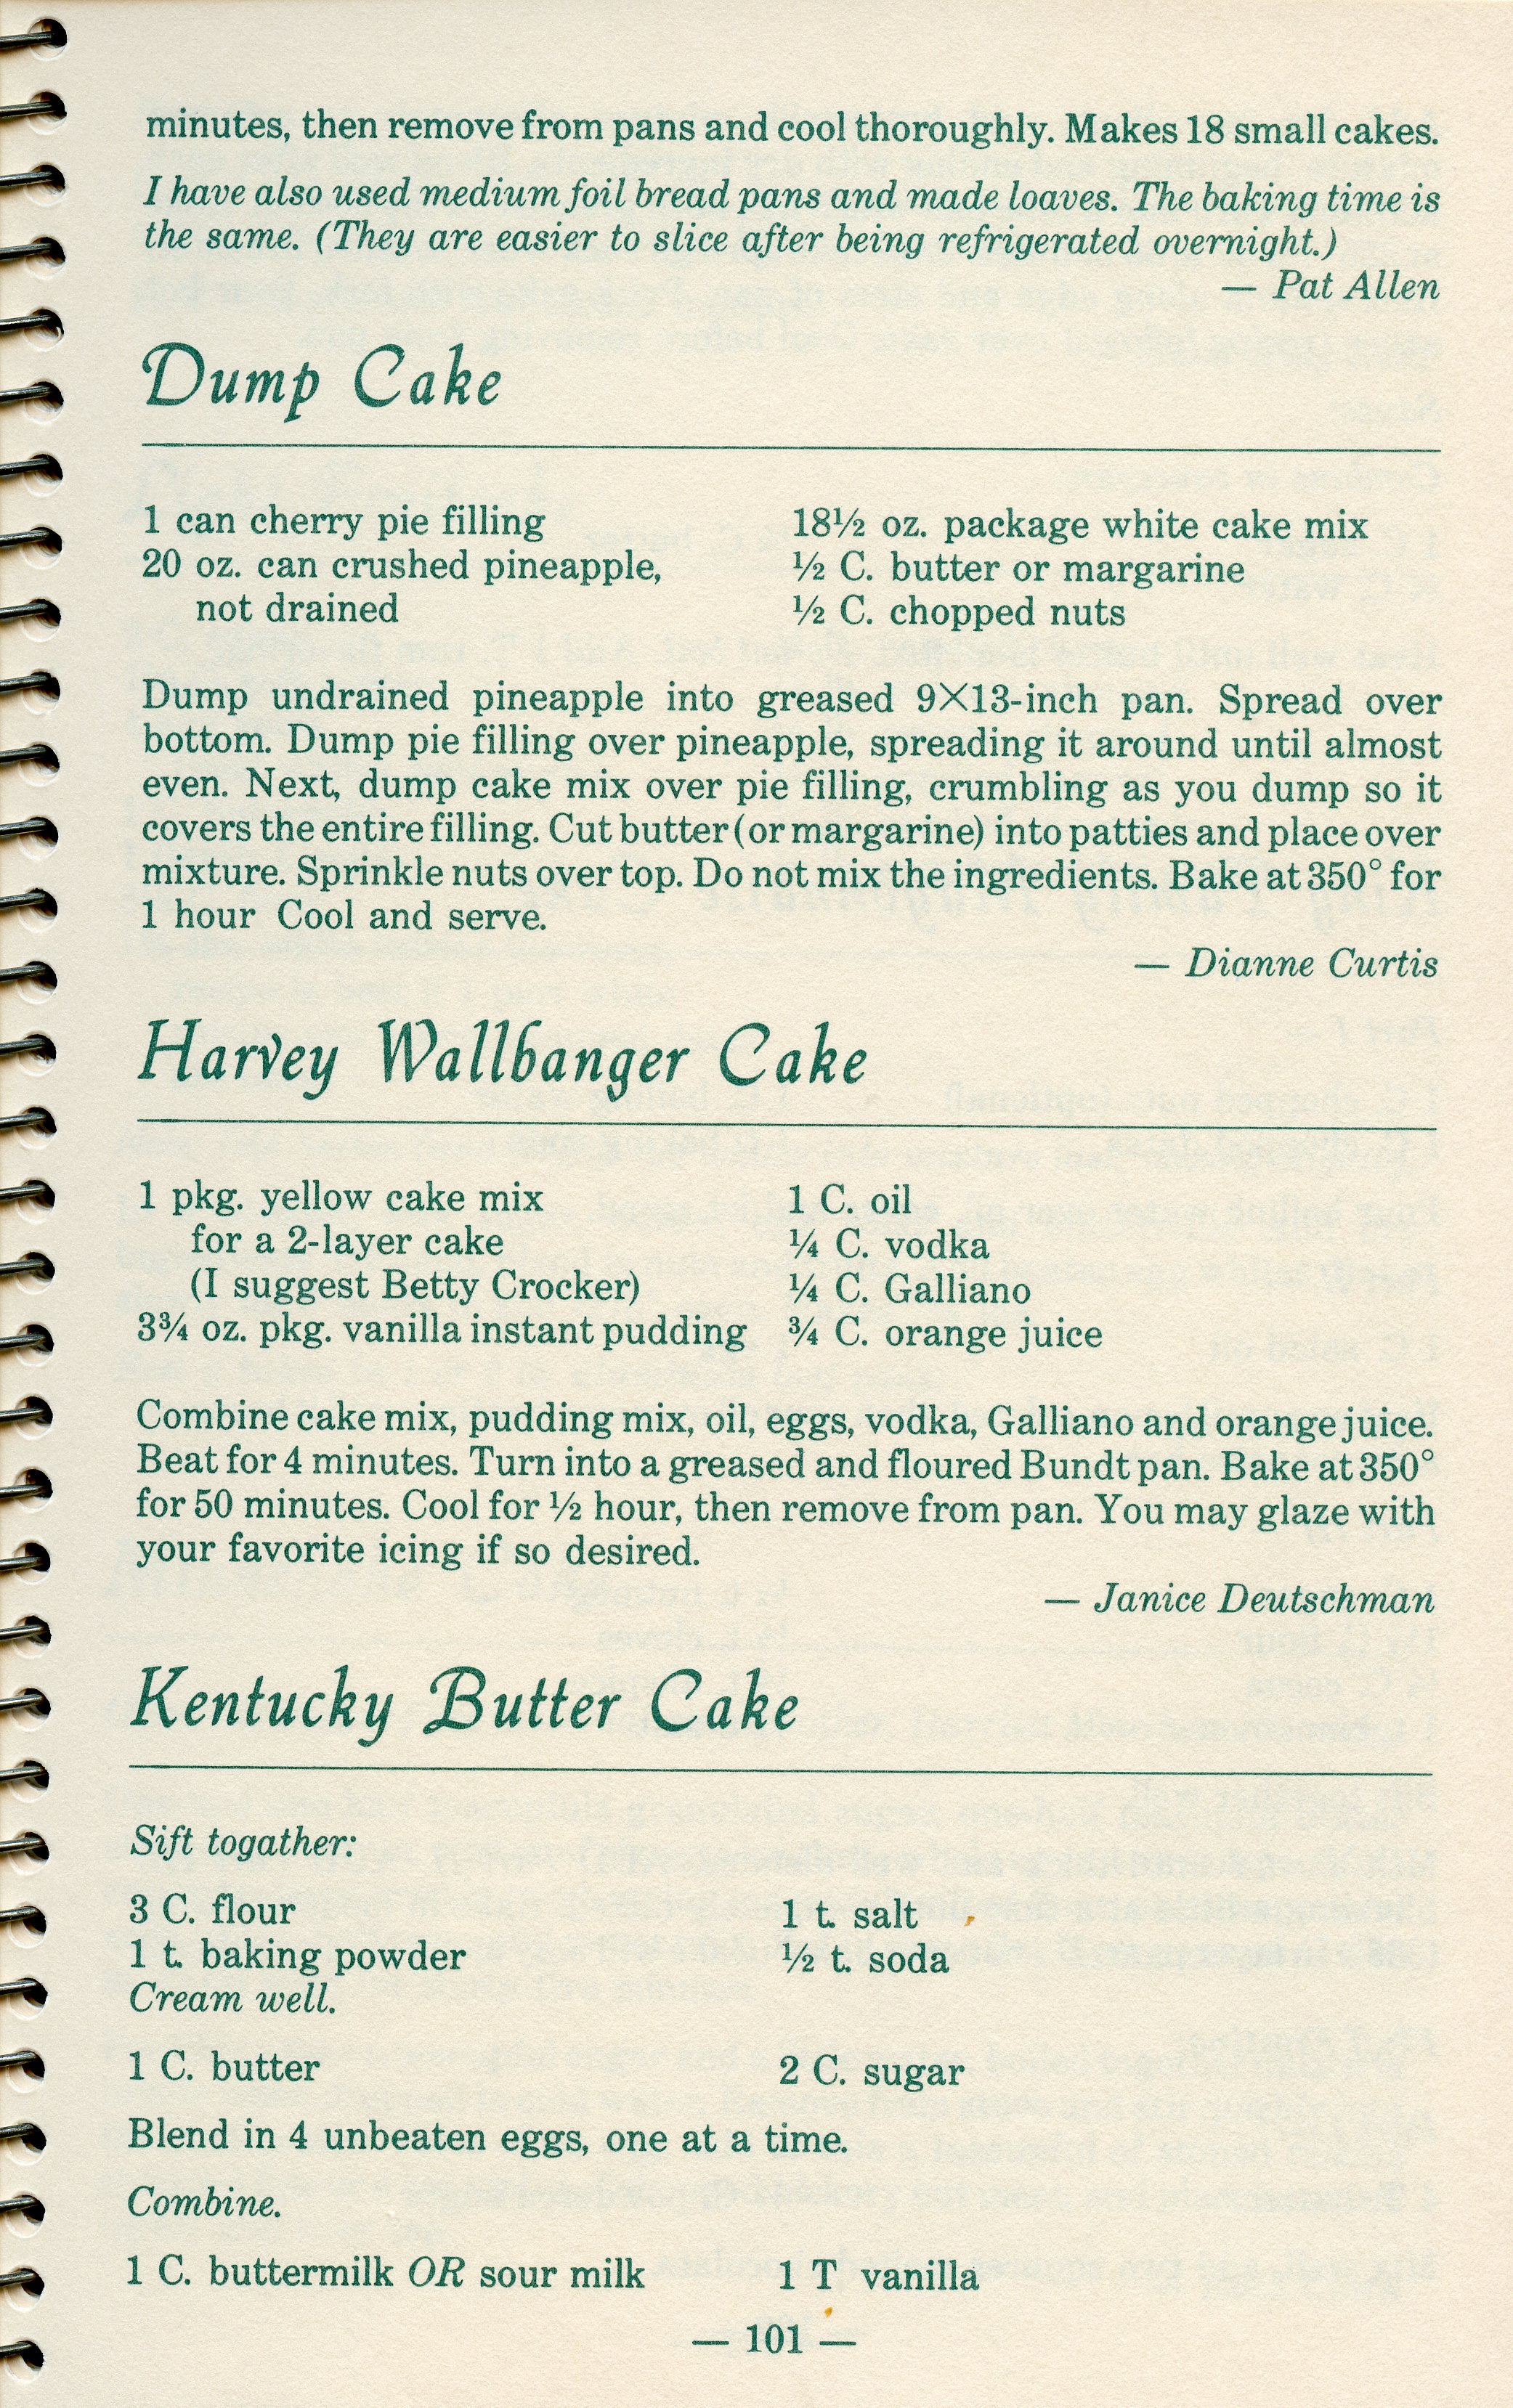 minutes, then remove from pans and cool thoroughly. Makes 18 small cakes.
I have also used medium foil bread pans and made loaves. The baking time is
the same. (They are easier to slice after being refrigerated overnight.)
— Pat Allen
Dump Cake
1 can cherry pie filling
20 oz. can crushed pineapple,
not drained
18½ oz. package white cake mix
½ C. butter or margarine
½ C. chopped nuts
Dump undrained pineapple into greased 9X13-inch pan. Spread over
bottom. Dump pie filling over pineapple, spreading it around until almost
even. Next, dump cake mix over pie filling, crumbling as you dump so it
covers the entire filling. Cut butter (or margarine) into patties and place over
mixture. Sprinkle nuts over top. Do not mix the ingredients. Bake at 350° for
1 hour Cool and serve.
— Dianne Curtis
Harvey Wallbanger Cake
1 pkg. yellow cake mix
for a 2-layer cake
(I suggest Betty Crocker)
3¾ oz. pkg. vanilla instant pudding
1 C. oil
¼ C. vodka
¼ C. Galliano
¾ C. orange juice
Combine cake mix, pudding mix, oil, eggs, vodka, Galliano and orange juice.
Beat for 4 minutes. Turn into a greased and floured Bundt pan. Bake at 350°
for 50 minutes. Cool for ½ hour, then remove from pan. You may glaze with
your favorite icing if so desired.
— Janice Deutschman
Kentucky Butter Cake
Sift togather:
3 C. flour
1 t. baking powder
1 t. salt
½ t. soda
Cream well.
1 C. butter
2 C. sugar
Blend in 4 unbeaten eggs, one at a time.
Combine.
1 C. buttermilk OR sour milk
1 T vanilla
— 101 —